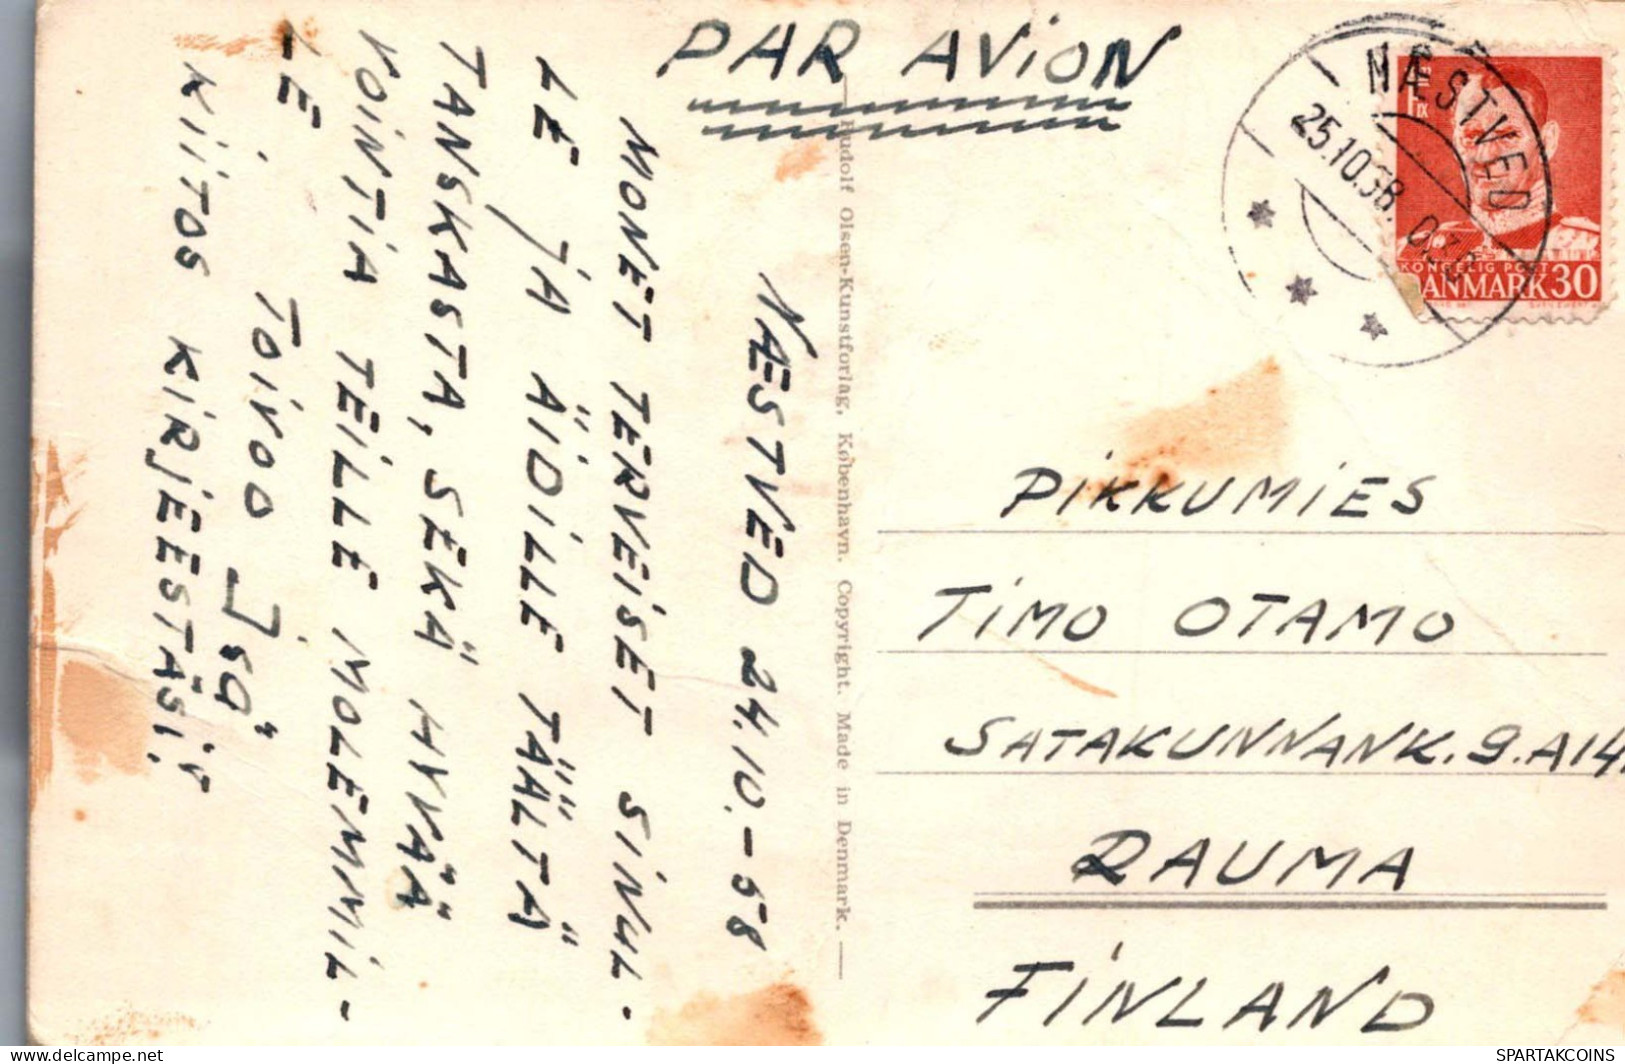 PAR AVION
NÆSTVED
25.10.58.
KONGELIG POST
DANMARK 30
NÆSTVED 24.10.-58
MONET TERVEISET SINUL-
LE JA ÄIDILLE TÄÄLTÄ
TANSKASTA, SEKÄ HYVÄÄ
VOINTIA TEILLE MOLEMMIL-
LE.
TOIVOO Isä
KIITOS KIRJEESTÄSI!
Rudolf Olsen-Kunstforlag, København. Copyright. Made in Denmark.
PIKKUMIES
TIMO OTAMO
SATAKUNNANK.9.A14
RAUMA
FINLAND
SPARTAKCOINS